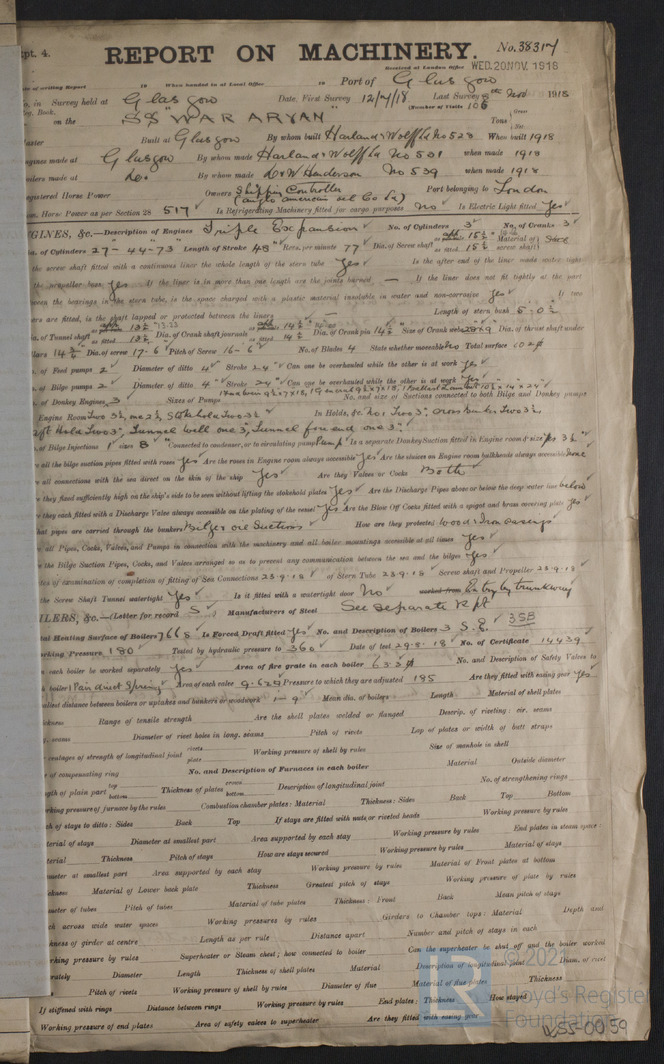 pt. 4.
REPORT ON MACHINERY.
No. 38317
Received at London Office WED. 20 NOV. 1918
of writing Report 19 When handed in at Local Office 19 Port of Glasgow
in Survey held at Glasgow Date, First Survey 12/4/18 Last Survey Nov 1918
Book. (Number of Visits 106
on the SS "WAR ARYAN" Tons Gross Net
Built at Glasgow By whom built Harland & Wolff Ld No 528 When built 1918
ngines made at Glasgow By whom made Harland & Wolff Ld No 531 when made 1918
oilers made at do. By whom made D & W Henderson No 539 when made 1918
egistered Horse Power Owners Shipping Controller (Anglo American Oil Co Ld) Port belonging to London
m. Horse Power as per Section 28 517 Is Refrigerating Machinery fitted for cargo purposes No Is Electric Light fitted Yes
GINES, &c.—Description of Engines Triple Expansion No. of Cylinders 3 No. of Cranks 3
of Cylinders 27 - 44 - 73" Length of Stroke 48" Revs. per minute 77 Dia. of Screw shaft as fitted 15 1/2 Material of screw shaft Steel
the screw shaft fitted with a continuous liner the whole length of the stern tube Yes Is the after end of the liner made water tight
the propeller boss Yes If the liner is in more than one length are the joints burned — If the liner does not fit tightly at the part
ween the bearings in the stern tube, is the space charged with a plastic material insoluble in water and non-corrosive Yes If two
ers are fitted, is the shaft lapped or protected between the liners — Length of stern bush 5-0 1/2
of Tunnel shaft as fitted 13 1/2 Dia. of Crank shaft journals as fitted 14 1/2 Dia. of Crank pin 14 1/2" Size of Crank webs 28 x 9 Dia. of thrust shaft under
llars 14 1/2 Dia. of screw 17-6" Pitch of Screw 16-6" No. of Blades 4 State whether moveable No Total surface
of Feed pumps 2 Diameter of ditto 4" Stroke 24" Can one be overhauled while the other is at work Yes
of Bilge pumps 2 Diameter of ditto 4" Stroke 24" Can one be overhauled while the other is at work Yes
of Donkey Engines 3 Sizes of Pumps No. and size of Suctions connected to both Bilge and Donkey pumps
Engine Room Two 3 1/2, one 2 1/2, Stokehold Two 3 1/2 In Holds, &c. No 1 Two 3", Cross Bunker Two 3 1/2,
Aft Hold Two 3", Tunnel well one 3", Tunnel fore end one 3".
of Bilge Injections 1 sizes 8" Connected to condenser, or to circulating pump Pump Is a separate Donkey Suction fitted in Engine room & size Yes 3 1/2"
all the bilge suction pipes fitted with roses Yes Are the roses in Engine room always accessible Yes Are the sluices on Engine room bulkheads always accessible None
all connections with the sea direct on the skin of the ship Yes Are they Valves or Cocks Both
they fixed sufficiently high on the ship's side to be seen without lifting the stokehold plates Yes Are the Discharge Pipes above or below the deep water line below
they each fitted with a Discharge Valve always accessible on the plating of the vessel Yes Are the Blow Off Cocks fitted with a spigot and brass covering plate Yes
hat pipes are carried through the bunkers Bilge & Oil Suctions How are they protected Wood & Iron casings
all Pipes, Cocks, Valves, and Pumps in connection with the machinery and all boiler mountings accessible at all times Yes
the Bilge Suction Pipes, Cocks, and Valves arranged so as to prevent any communication between the sea and the bilges Yes
tes of examination of completion of fitting of Sea Connections 23.9.18 of Stern Tube 23.9.18 Screw shaft and Propeller 23.9.18
the Screw Shaft Tunnel watertight Yes Is it fitted with a watertight door No worked from Entry by trunkway
ILERS, &c.—(Letter for record S) Manufacturers of Steel See Separate Rpt
tal Heating Surface of Boilers 7668 Is Forced Draft fitted Yes No. and Description of Boilers 3 S.E. 3SB
rking Pressure 180 Tested by hydraulic pressure to 360 Date of test 29.8.18 No. of Certificate 14439
each boiler be worked separately Yes Area of fire grate in each boiler 63.3 No. and Description of Safety Valves to
boiler 1 Pair direct Spring Area of each valve 9.629 Pressure to which they are adjusted 185 Are they fitted with easing gear Yes
allest distance between boilers or uptakes and bunkers or woodwork 1-9" Mean dia. of boilers Length Material of shell plates
ickness Range of tensile strength Are the shell plates welded or flanged Descrip. of riveting: cir. seams
seams Diameter of rivet holes in long. seams Pitch of rivets Lap of plates or width of butt straps
centages of strength of longitudinal joint rivets plate Working pressure of shell by rules Size of manhole in shell
of compensating ring No. and Description of Furnaces in each boiler Material Outside diameter
ngth of plain part top bottom Thickness of plates crown bottom Description of longitudinal joint No. of strengthening rings
rking pressure of furnace by the rules Combustion chamber plates: Material Thickness: Sides Back Top Bottom
ch of stays to ditto: Sides Back Top If stays are fitted with nuts or riveted heads Working pressure by rules
terial of stays Diameter at smallest part Area supported by each stay Working pressure by rules End plates in steam space:
terial Thickness Pitch of stays How are stays secured Working pressure by rules Material of stays
meter at smallest part Area supported by each stay Working pressure by rules Material of Front plates at bottom
ickness Material of Lower back plate Thickness Greatest pitch of stays Working pressure of plate by rules
meter of tubes Pitch of tubes Material of tube plates Thickness: Front Back Mean pitch of stays
ch across wide water spaces Working pressures by rules Girders to Chamber tops: Material Depth and
kness of girder at centre Length as per rule Distance apart Number and pitch of stays in each
rking pressure by rules Superheater or Steam chest; how connected to boiler Can the superheater be shut off and the boiler worked
rately Diameter Length Thickness of shell plates Material Description of longitudinal joint Diam. of rivet
Pitch of rivets Working pressure of shell by rules Diameter of flue Material of flue plates Thickness
If stiffened with rings Distance between rings Working pressure by rules End plates: Thickness How stayed
Working pressure of end plates Area of safety valves to superheater Are they fitted with easing gear
© 2021
Lloyd's Register
Foundation
W55-0059